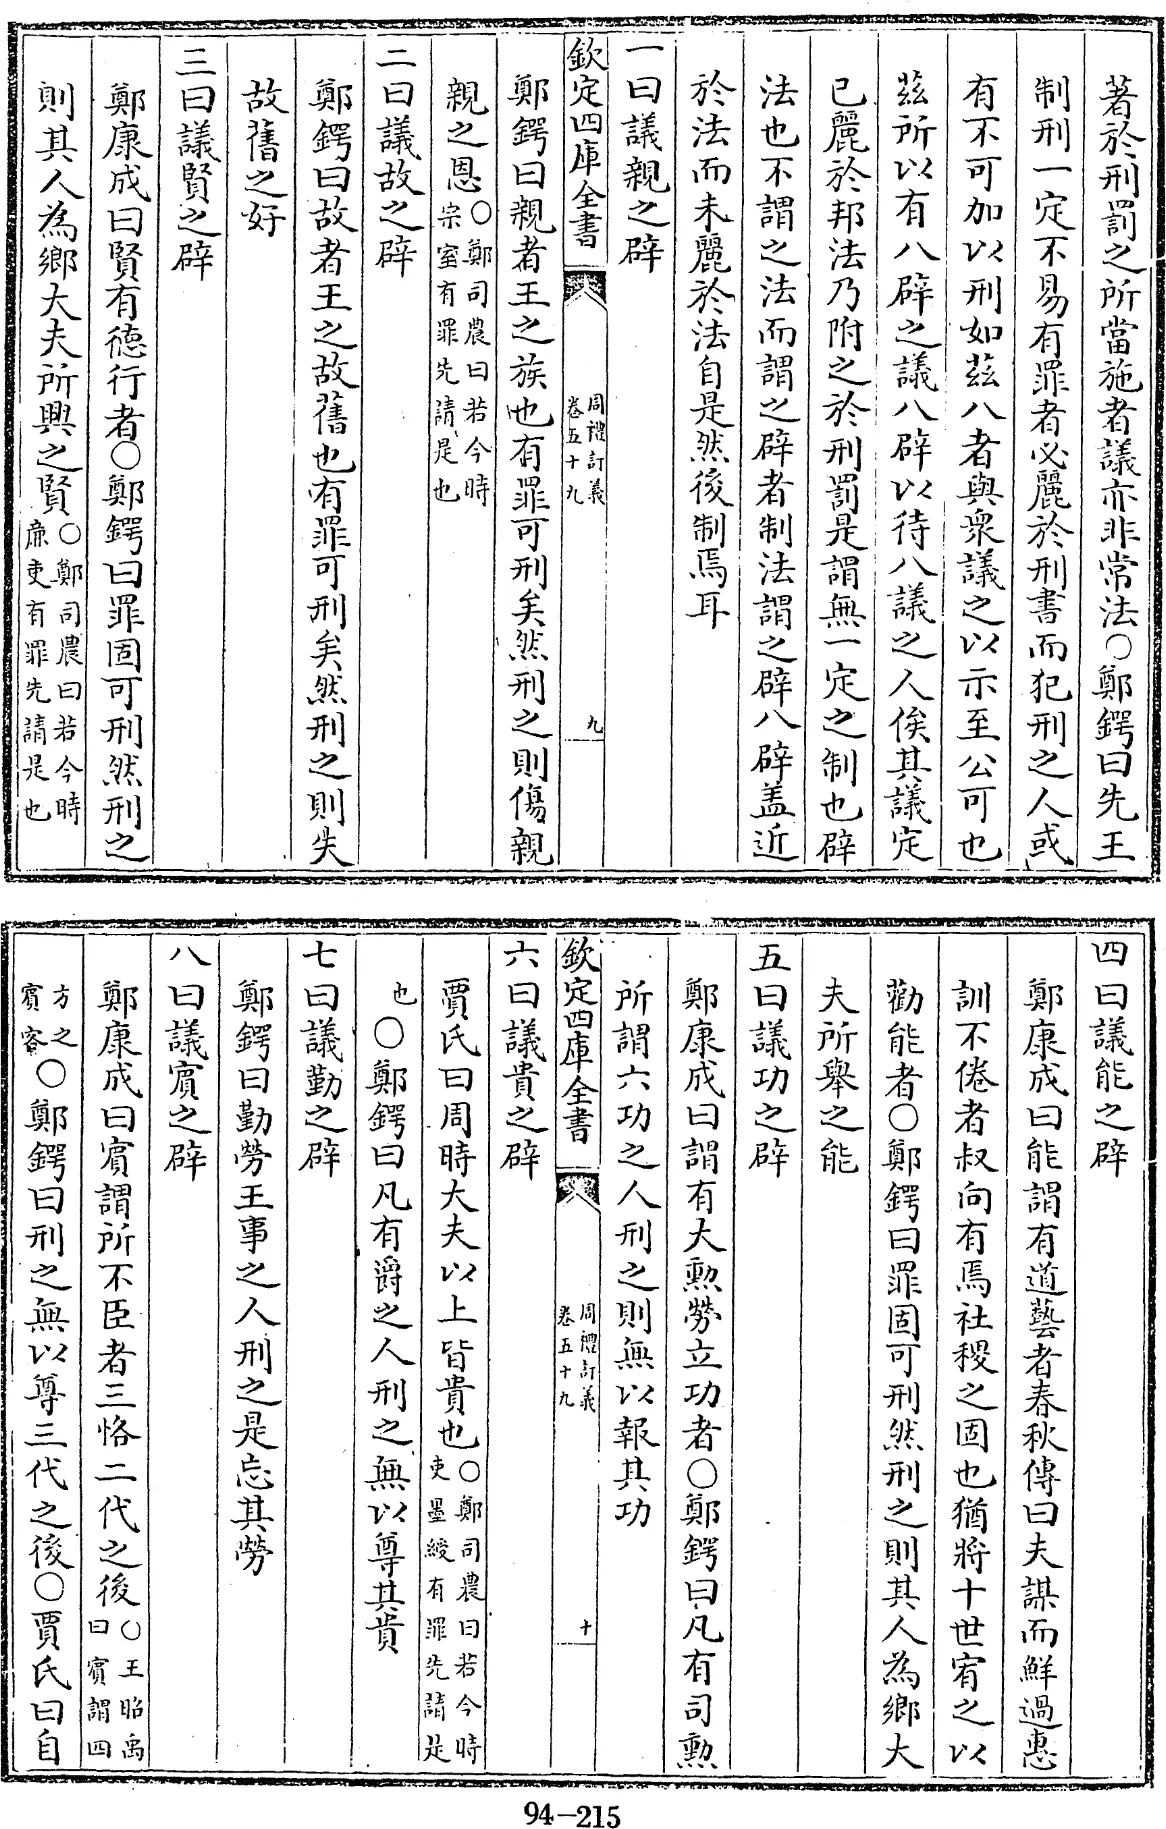 著於刑罰之所當施者議亦非常法○鄭鍔曰先王
制刑一定不易有罪者必麗於刑書而犯刑之人或
有不可加以刑如茲八者與衆議之以示至公可也
茲所以有八辟之議八辟以待八議之人俟其議定
已麗於邦法乃附之於刑罰是謂無一定之制也辟
法也不謂之法而謂之辟者制法謂之辟八辟盖近
於法而未麗於法自是然後制焉耳
一曰議親之辟
欽定四庫全書
周禮訂義
卷五十九
九
鄭鍔曰親者王之族也有罪可刑矣然刑之則傷親
親之恩○鄭司農曰若今時
宗室有罪先請是也
二曰議故之辟
鄭鍔曰故者王之故舊也有罪可刑矣然刑之則失
故舊之好
三曰議賢之辟
鄭康成曰賢有德行者○鄭鍔曰罪固可刑然刑之
則其人為鄉大夫所興之賢○鄭司農曰若今時
廉吏有罪先請是也
四曰議能之辟
鄭康成曰能謂有道藝者春秋傳曰夫謀而鮮過惠
訓不倦者叔向有焉社稷之固也猶將十世宥之以
勸能者○鄭鍔曰罪固可刑然刑之則其人為鄉大
夫所舉之能
五曰議功之辟
鄭康成曰謂有大勲勞立功者○鄭鍔曰凡有司勲
所謂六功之人刑之則無以報其功
欽定四庫全書
周禮訂義
卷五十九
十
六曰議貴之辟
賈氏曰周時大夫以上皆貴也○鄭司農曰若今時
吏墨綬有罪先請是
也○鄭鍔曰凡有爵之人刑之無以尊其貴
七曰議勤之辟
鄭鍔曰勤勞王事之人刑之是忘其勞
八曰議賓之辟
鄭康成曰賓謂所不臣者三恪二代之後○王昭禹
曰賓謂四
方之
賓客○鄭鍔曰刑之無以尊三代之後○賈氏曰自
94-215